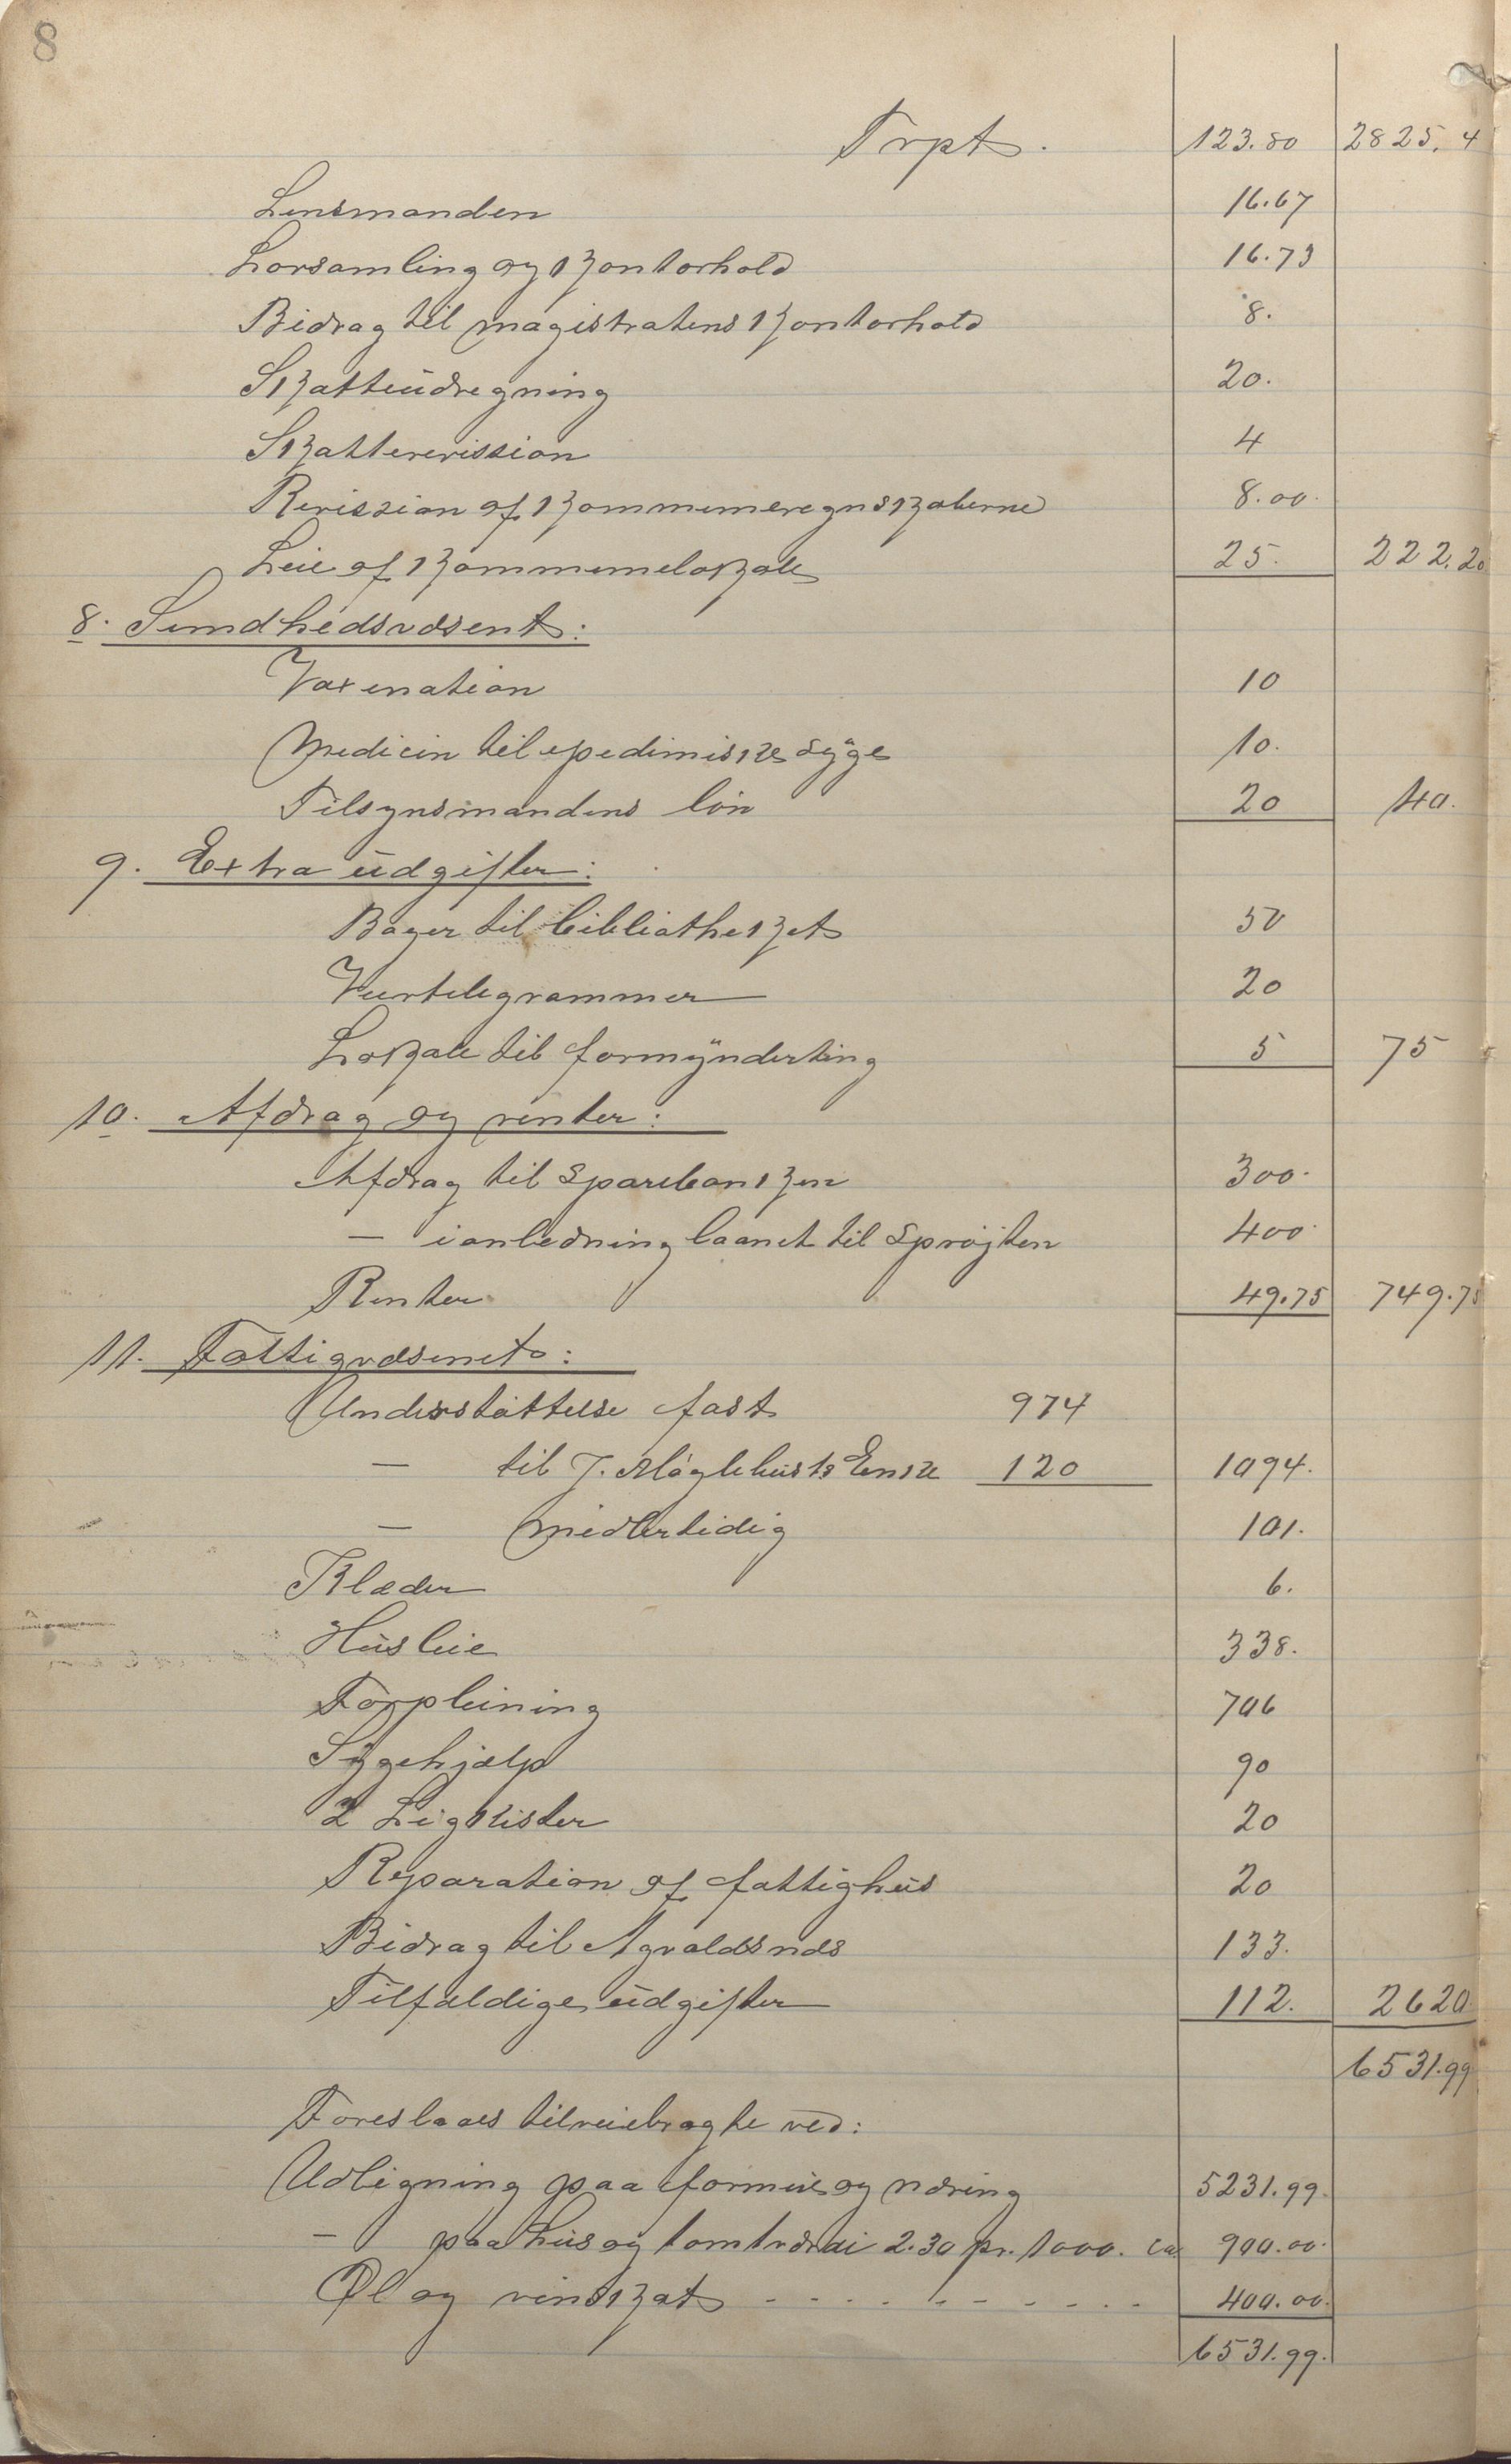 8
Trpt. 123.80 2825.4
Lensmanden 16.67
Lovsamling og kontorhold 16.73
Bidrag til magistratens kontorhold 8.
Skatteudregning 20.
Skatterevission 4
Revission af kommuneregnskaberne 8.00.
Leie af kommunelokale 25. 222.20
8. Sundhedsvæsent:
Vaxenation 10
Medicin til epedimiske syge 10.
Tilsynsmandens løn 20 40.
9. Extra udgifter:
Bøger til bibliotheket 50
Veirtelegrammer 20
Lokale til formynderting 5 75
10. Afdrag og renter:
Afdrag til Sparebanken 300.
— i anledning laanet til Sprøjten 400.
Renter 49.75 749.75
11. Fattigvæsenet:
Understøttelse fast 974
— til J. Møglehus's Enke 120 1094.
— midlertidig 101.
Klæder 6.
Husleie 338.
Forpleining 706
Sygehjælp 90
2 Ligkister 20
Reparation af fattighus 20
Bidrag til Agvaldsnæs 133.
Tilfældige udgifter 112. 2620
6531.99
Foreslaaes tilveiebragte ved:
Udligning paa formue og næring 5231.99.
— paa hus og tomtværdi 2.30 pr. 1000. ca 900.00.
Øl og vinskat - - - - - - - - - 400.00.
6531.99.